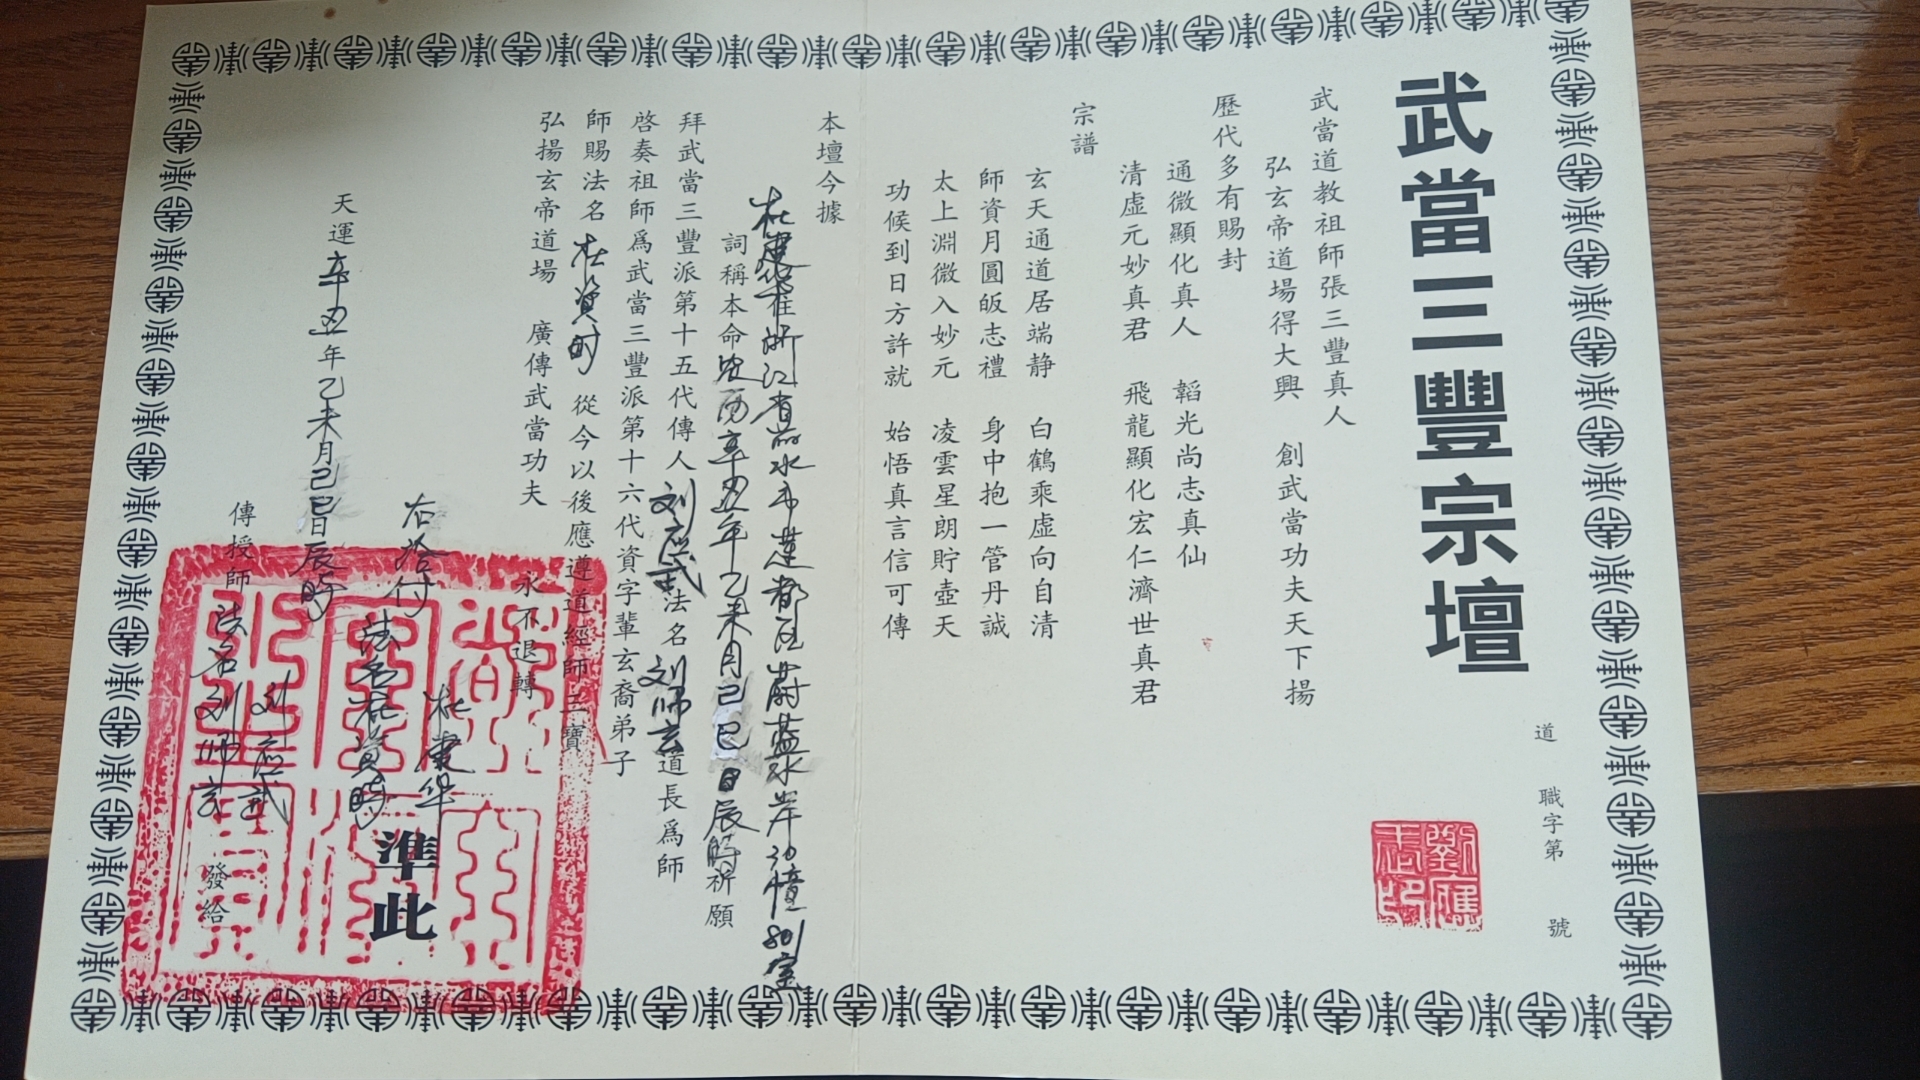 武當三豐宗壇
道 職字第 號
武當道教祖師張三豐真人
弘玄帝道場得大興 創武當功夫天下揚
歷代多有賜封
通微顯化真人 韜光尚志真仙
清虛元妙真君 飛龍顯化宏仁濟世真君
宗譜
玄天通道居端静 白鶴乘虛向自清
師資月圓皈志禮 身中抱一管丹誠
太上淵微入妙元 凌雲星朗貯壺天
功候到日方許就 始悟真言信可傳
本壇今據
杜建华在浙江省丽水市莲都区蔚蓝水岸幢室
詞稱本命辛丑年乙未月己巳日辰時祈願
拜武當三豐派第十五代傳人刘应武法名刘师玄道長爲師
啓奏祖師爲武當三豐派第十六代資字輩玄裔弟子
師賜法名杜資时 從今以後應遵道經師三寶
弘揚玄帝道場 廣傳武當功夫
永不退轉
右给付 杜建华
法名杜資時
準此
天運辛丑年乙未月己巳日辰時
傳授師 刘应武
法名刘师玄 發給
劉應武印